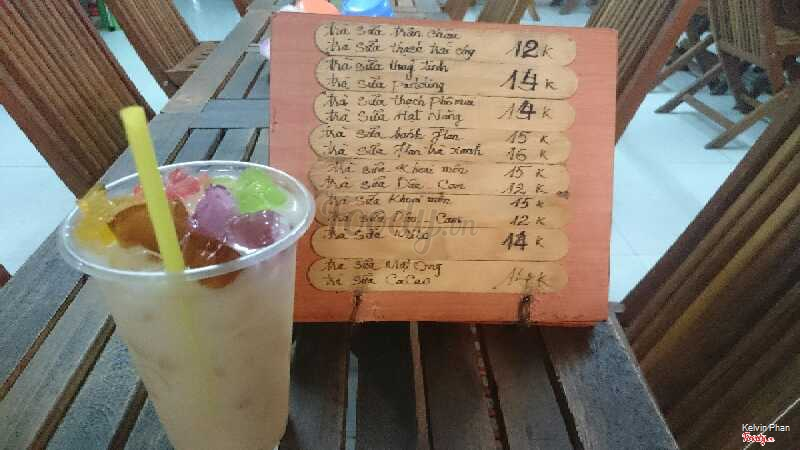 trà sữa trân châu
trà sữa thạch trái cây 12 K
trà sữa thuỷ tinh
trà sữa pudding 14 K
trà sữa thạch phô mai
trà sữa Hạt Năng 14 K
trà sữa bánh flan 15 K
trà sữa flan trà xanh 16 K
trà sữa Khoai môn 15 K
trà sữa Dâu Con 12 K
trà sữa Khoai môn 15 K
trà sữa Con 12 K
trà sữa 14 K
trà sữa Mật Ong
trà sữa CaCao K
Kelvin Phan
Foody.vn